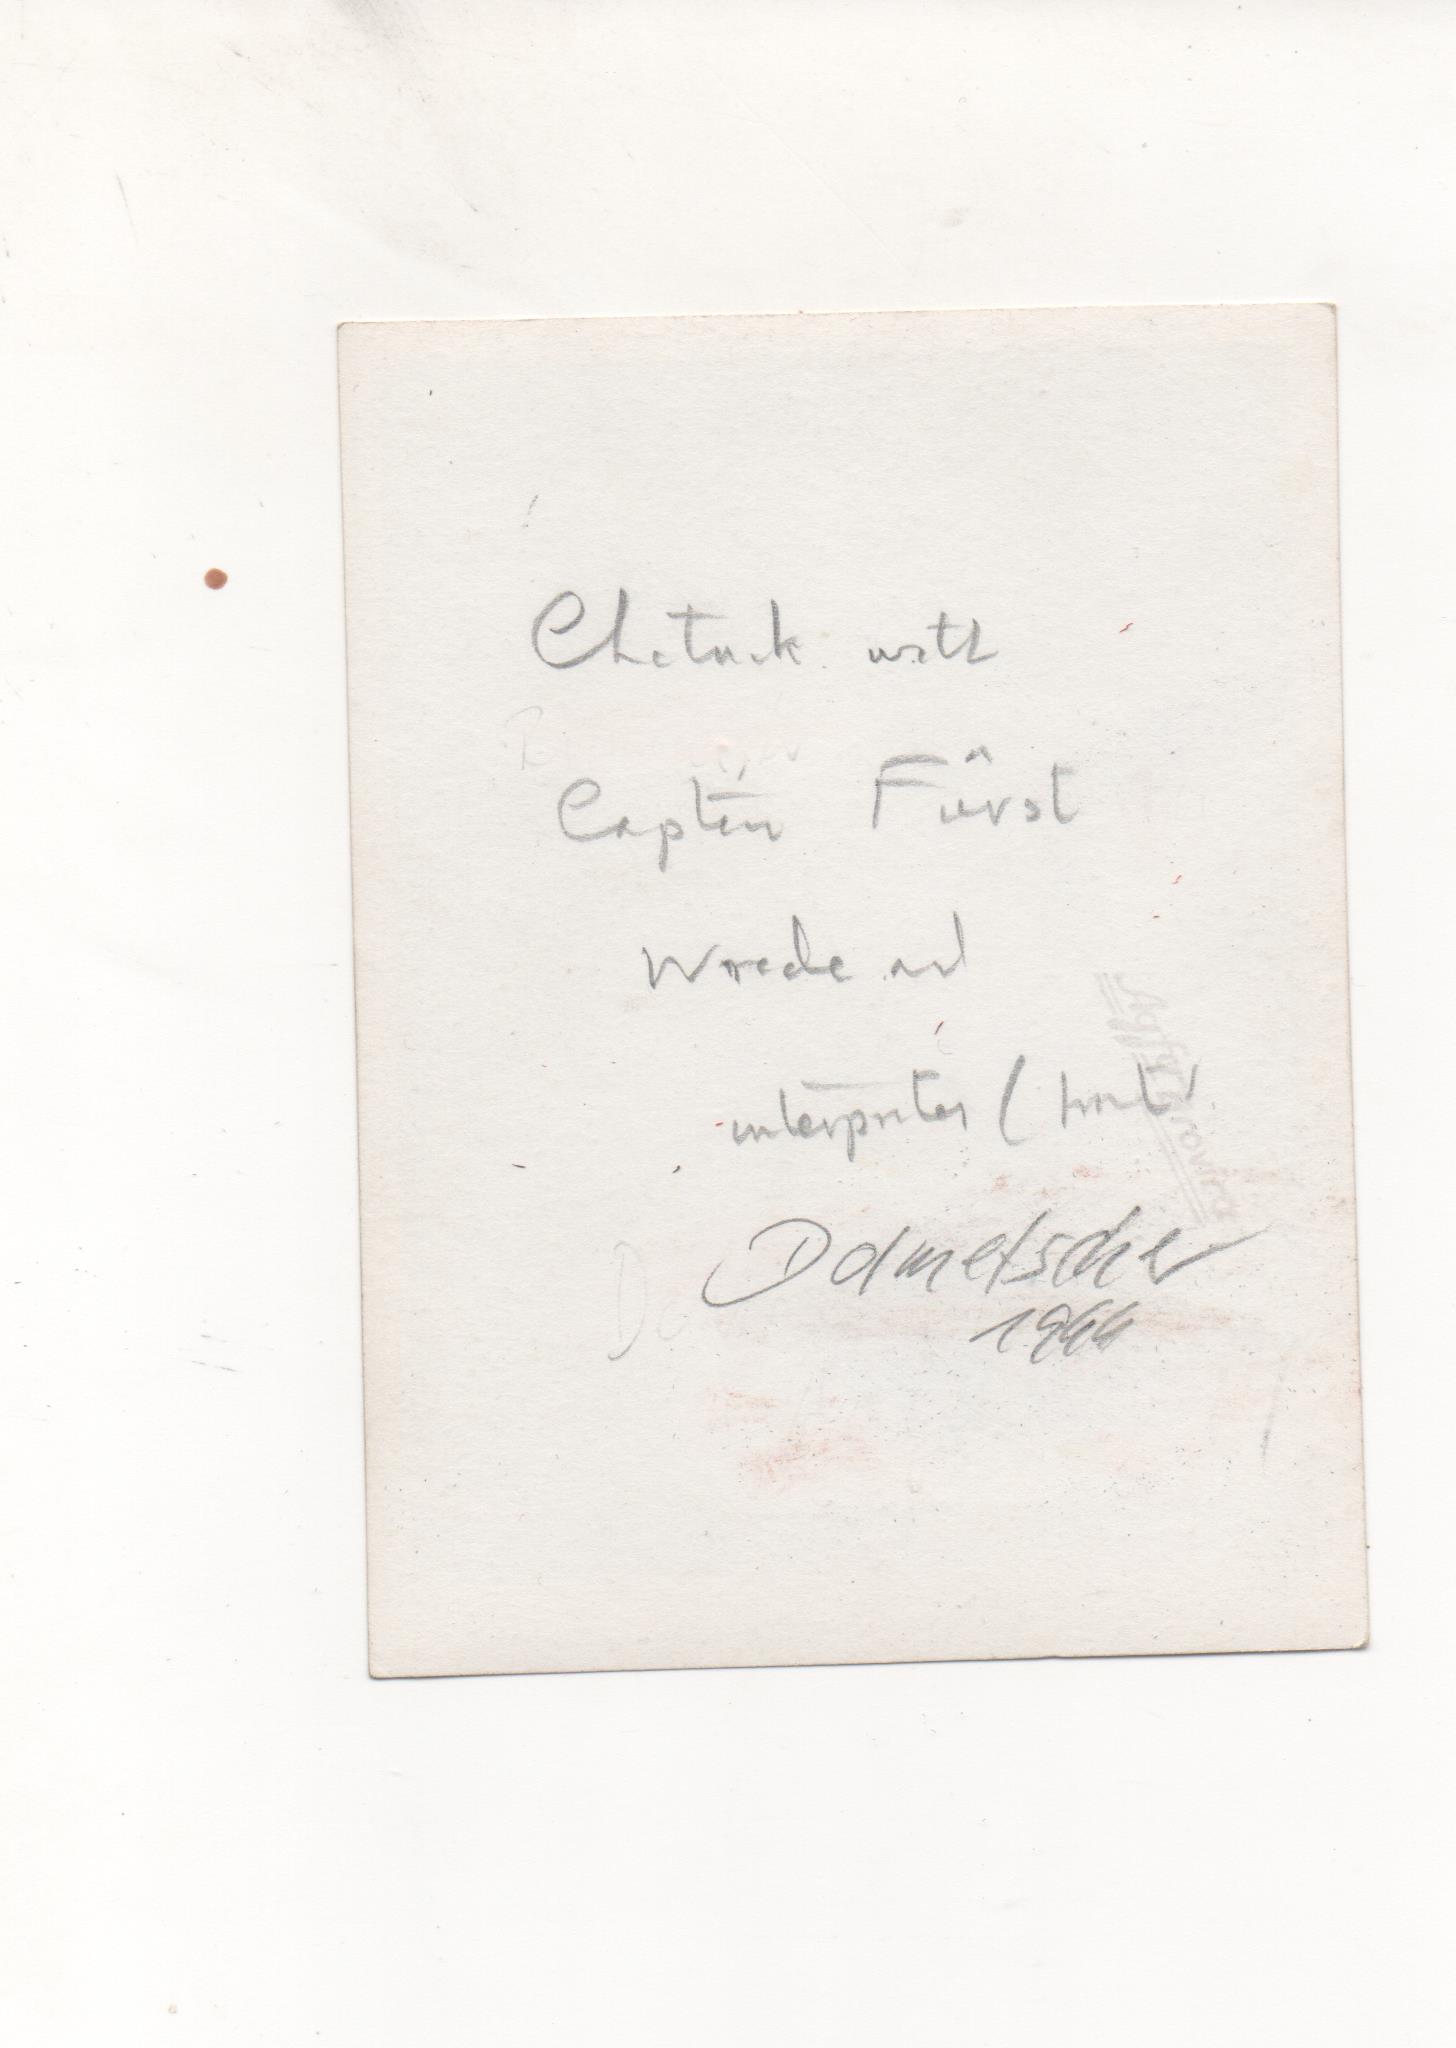 Chetnik with
Captain Fürst
Wrede and
interpreter (
Dolmetscher
1944